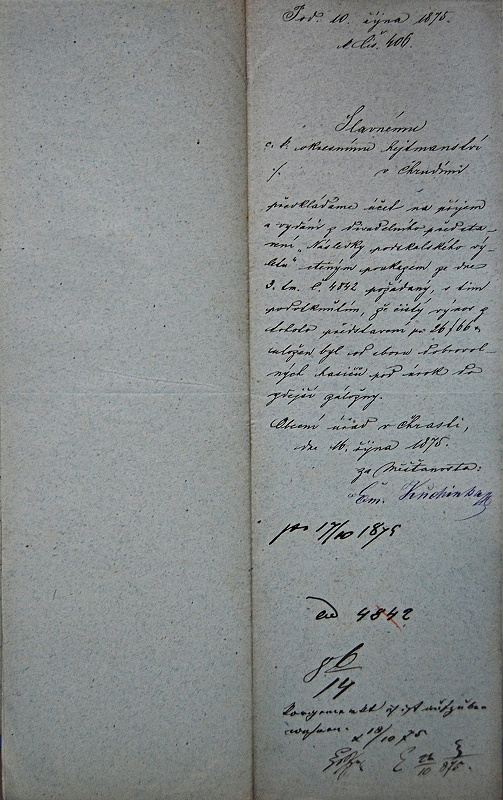 Pod. 10. října 1875.
čís. 406.
Slavnému
c. k. okresnímu hejtmanství
v Chrudimi
předkládáme účet na příjem
a vydání z divadelního předsta-
vení „Následky podskalského vý-
letu" ctěným poukazem ze dne
3. t.m. č. 4842 požádaný, s tím
podotknutím, že čistý výnos z
tohoto představení pr 26 f 66 x
uložen byl od sboru dobrovol-
ných hasičů pod úrok do
zdejší záložny.
Obecní úřad v Chrasti,
dne 16. října 1875.
za Měšťanosta:
Em. Kuchinka
pr 17/10 1875
ad 4842
g b
14
Vorgemerkt ist aufzube-
wahren. 19/10 75
22/10 875.